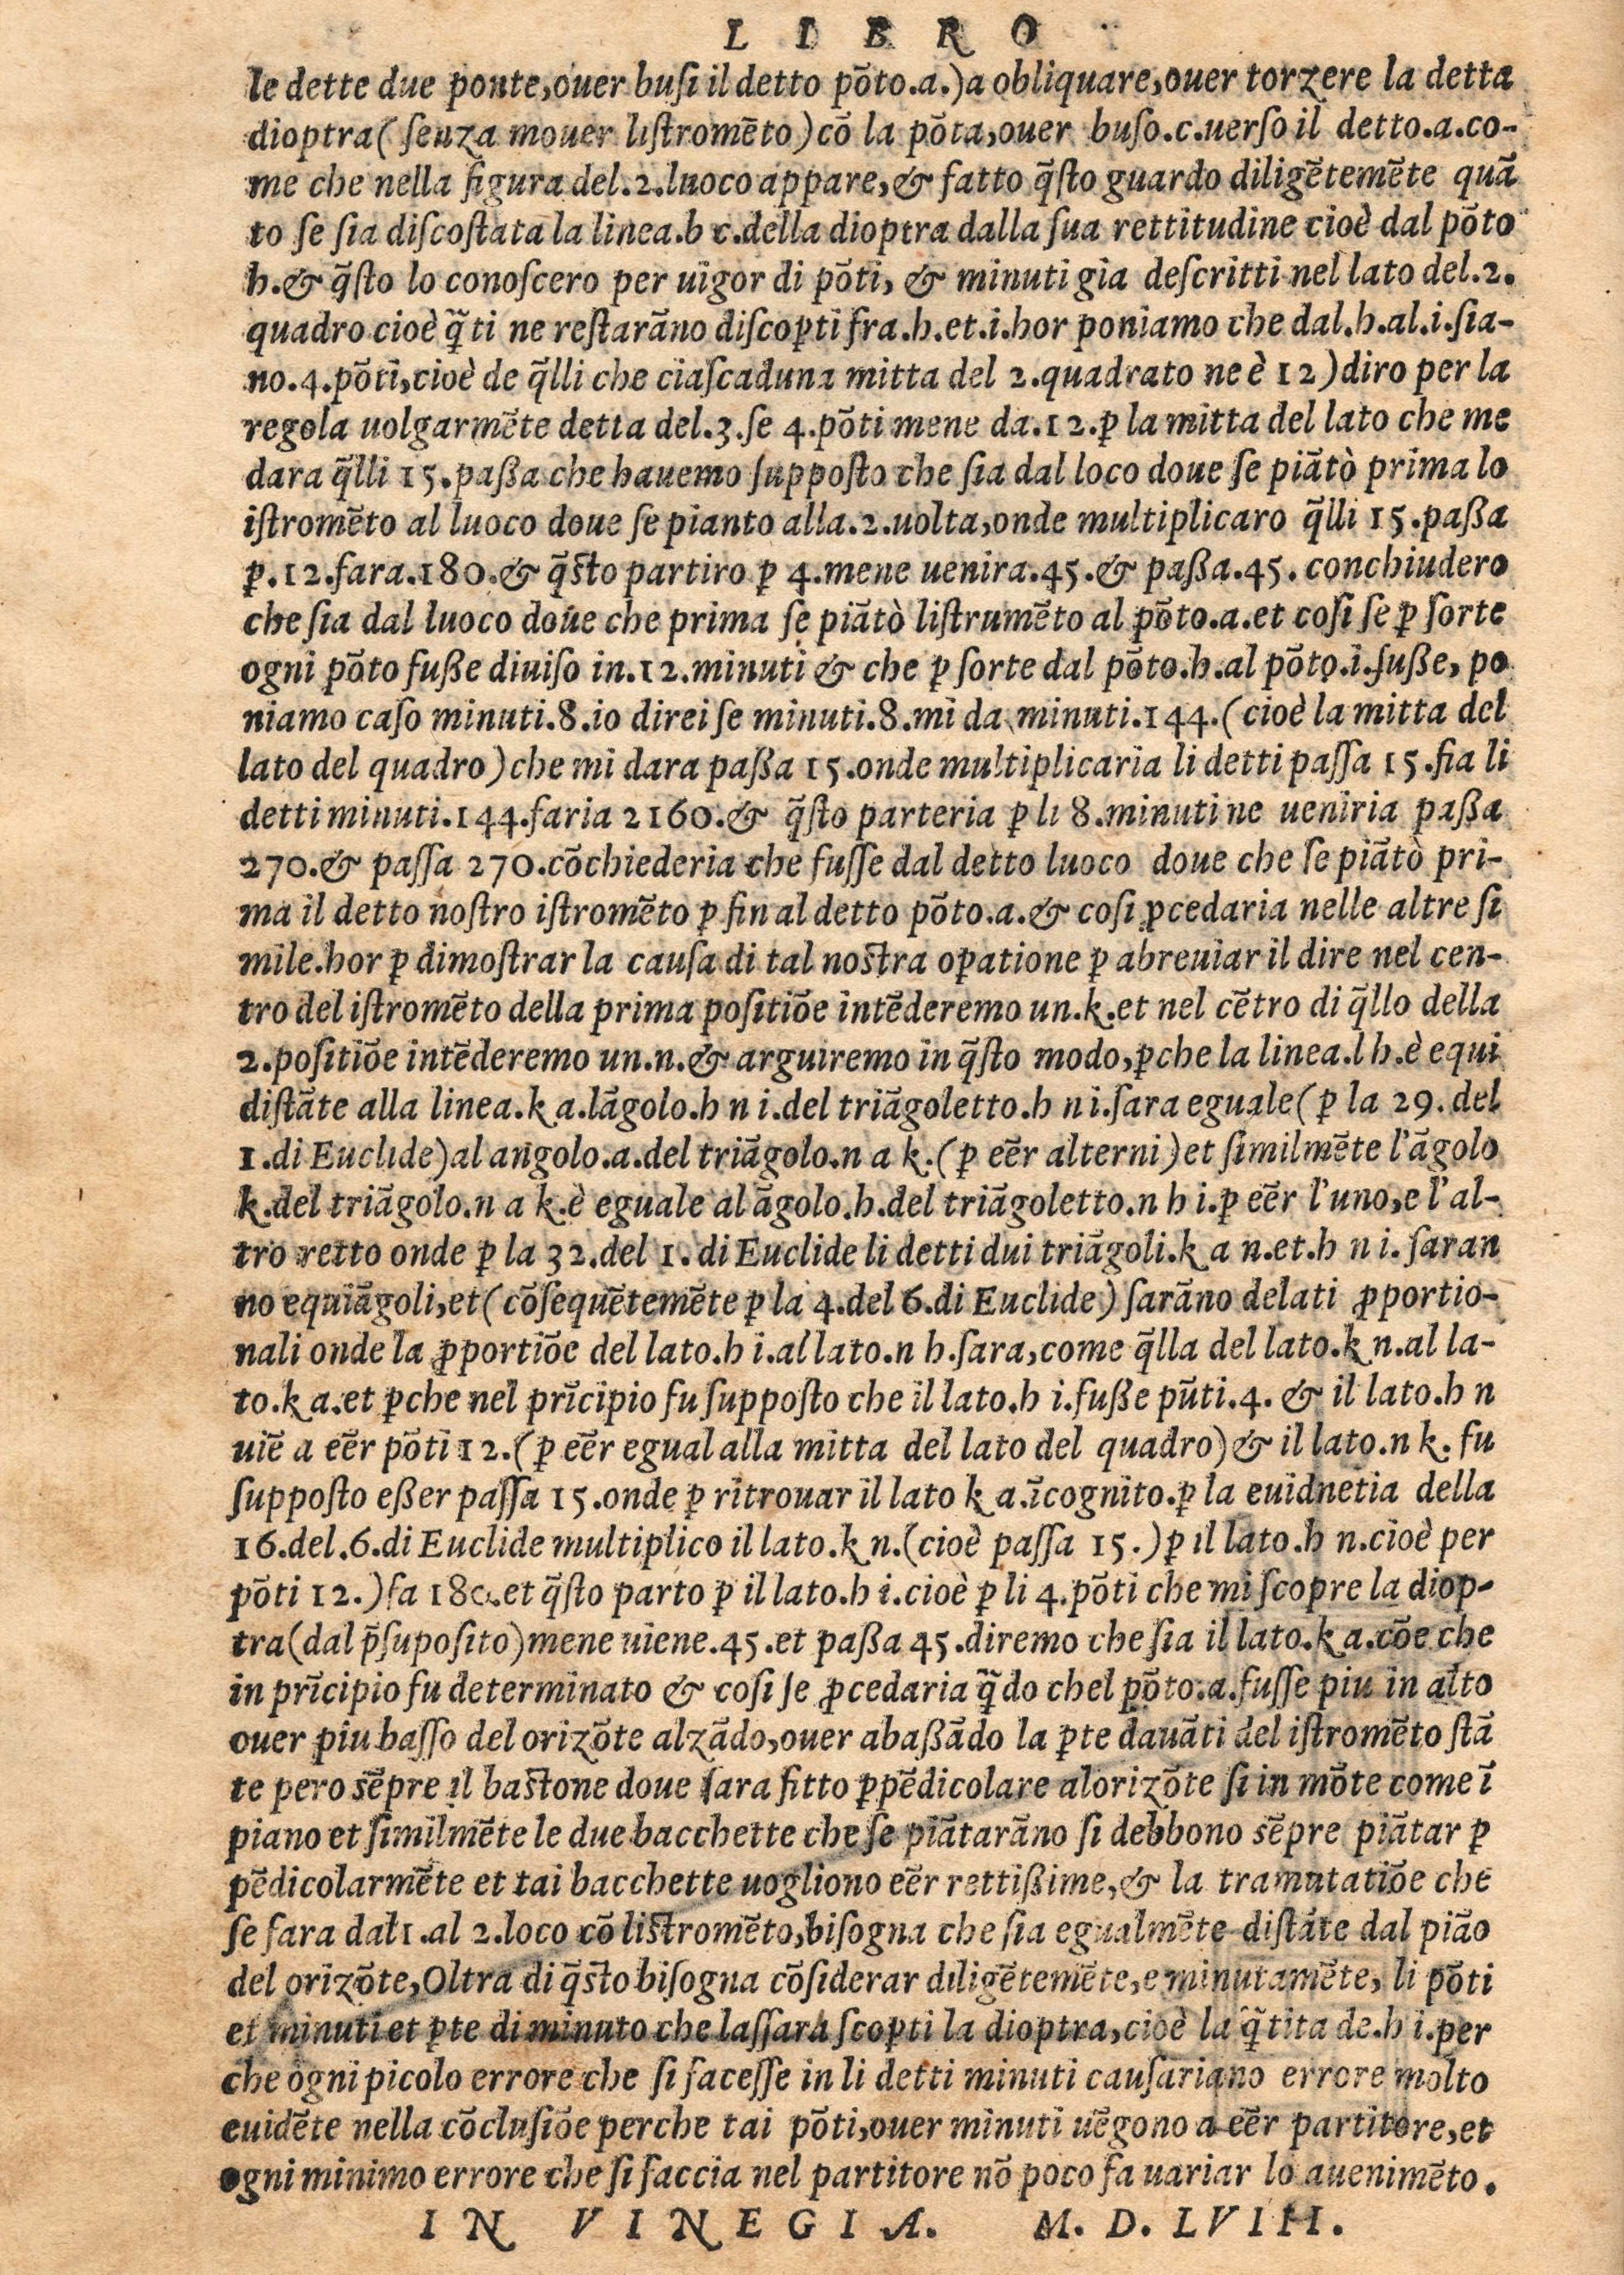 L I B R O
le dette due ponte,ouer busi il detto põto.a.)a obliquare,ouer torzere la detta
dioptra(senza mouer listromẽto)cõ la põta,ouer buso.c.uerso il detto.a.co-
me che nella figura del.2.luoco appare,& fatto q̃sto guardo diligẽtemẽte quã
to se sia discostata la linea.b c.della dioptra dalla sua rettitudine cioè dal põto
h.& q̃sto lo conoscero per uigor di põti, & minuti gia descritti nel lato del.2.
quadro cioè q̃ti ne restarãno discoꝑti fra.h.et.i.hor poniamo che dal.h.al.i.sia-
no.4.põti,cioè de q̃lli che ciascaduna mitta del 2.quadrato ne è 12)diro per la
regola uolgarmẽte detta del.3.se 4.põti mene da.12.ꝑ la mitta del lato che me
dara q̃lli 15.paßa che hauemo supposto che sia dal loco doue se piãtò prima lo
istromẽto al luoco doue se pianto alla.2.uolta,onde multiplicaro q̃lli 15.paßa
ꝑ.12.fara.180.& q̃sto partiro ꝑ 4.mene uenira.45.& paßa.45.conchiudero
che sia dal luoco doue che prima se piãtò listrumẽto al põto.a.et cosi se ꝑ sorte
ogni põto fuße diuiso in.12.minuti & che ꝑ sorte dal põto.h.al põto.i.fuße, po
niamo caso minuti.8.io direi se minuti.8.mi da minuti.144.(cioè la mitta del
lato del quadro)che mi dara paßa 15.onde multiplicaria li detti passa 15.fia li
detti minuti.144.faria 2160.& q̃sto parteria ꝑ li 8.minuti ne ueniria paßa
270.& passa 270.cõchiederia che fusse dal detto luoco doue che se piãtò pri-
ma il detto nostro istromẽto ꝑ fin al detto põto.a.& cosi ꝓcedaria nelle altre si
mile.hor ꝑ dimostrar la causa di tal nostra oꝑatione ꝑ abreuiar il dire nel cen-
tro del istromẽto della prima positiõe intẽderemo un.k.et nel cẽtro di q̃llo della
2.positiõe intẽderemo un.n.& arguiremo in q̃sto modo,ꝑche la linea.l h.è equi
distãte alla linea.k a.lãgolo.h n i.del triãgoletto.h n i.sara eguale(ꝑ la 29.del
1.di Euclide)al angolo.a.del triãgolo.n a k.(ꝑ eẽr alterni)et similmẽte l'ãgolo
k.del triãgolo.n a k.è eguale al ãgolo.h.del triãgoletto.n h i.ꝑ eẽr l'uno,e l'al-
tro retto onde ꝑ la 32.del 1.di Euclide li detti dui triãgoli.k a n.et.h n i.saran
no equiãgoli,et(cõsequẽtemẽte ꝑ la 4.del 6.di Euclide)sarãno delati ꝓportio-
nali onde la ꝓportiõe del lato.h i.al lato.n h.sara,come q̃lla del lato.k n.al la-
to.k a.et ꝑche nel prĩcipio fu supposto che il lato.h i.fuße pũti.4. & il lato.h n
uiẽ a eẽr põti 12.(ꝑ eẽr egual alla mitta del lato del quadro)& il lato.n k.fu
supposto eßer passa 15.onde ꝑ ritrouar il lato k a.ĩcognito.ꝑ la euidnetia della
16.del.6.di Euclide multiplico il lato.k n.(cioè passa 15.)ꝑ il lato.h n.cioè per
põti 12.)fa 180.et q̃sto parto ꝑ il lato.h i.cioè ꝑ li 4.põti che mi scopre la diop-
tra(dal p̃suposito)mene uiene.45.et paßa 45.diremo che sia il lato.k a.cõe che
in prĩcipio fu determinato & cosi se ꝓcedaria q̃do chel põto.a.fusse piu in alto
ouer piu basso del orizõte alzãdo,ouer abaßãdo la ꝑte dauãti del istromẽto stã
te pero sẽpre il bastone doue sara fitto ꝑpẽdicolare alorizõte si in mõte come ĩ
piano et similmẽte le due bacchette che se piãtarãno si debbono sẽpre piãtar ꝑ
pẽdicolarmẽte et tai bacchette uogliono eẽr rettißime,& la tramutatiõe che
se fara dal 1.al 2.loco cõ listromẽto,bisogna che sia egualmẽte distãte dal pião
del orizõte,Oltra di q̃sto bisogna cõsiderar diligẽtemẽte,e minutamẽte, li põti
et minuti et ꝑte di minuto che lassara scoꝑti la dioptra,cioè la q̃tita de.h i.per
che ogni picolo errore che si facesse in li detti minuti causariano errore molto
euidẽte nella cõclusiõe perche tai põti,ouer minuti uẽgono a eẽr partitore,et
ogni minimo errore che si faccia nel partitore nõ poco fa uariar lo auenimẽto.
I N V I N E G I A. M. D. LVIII.